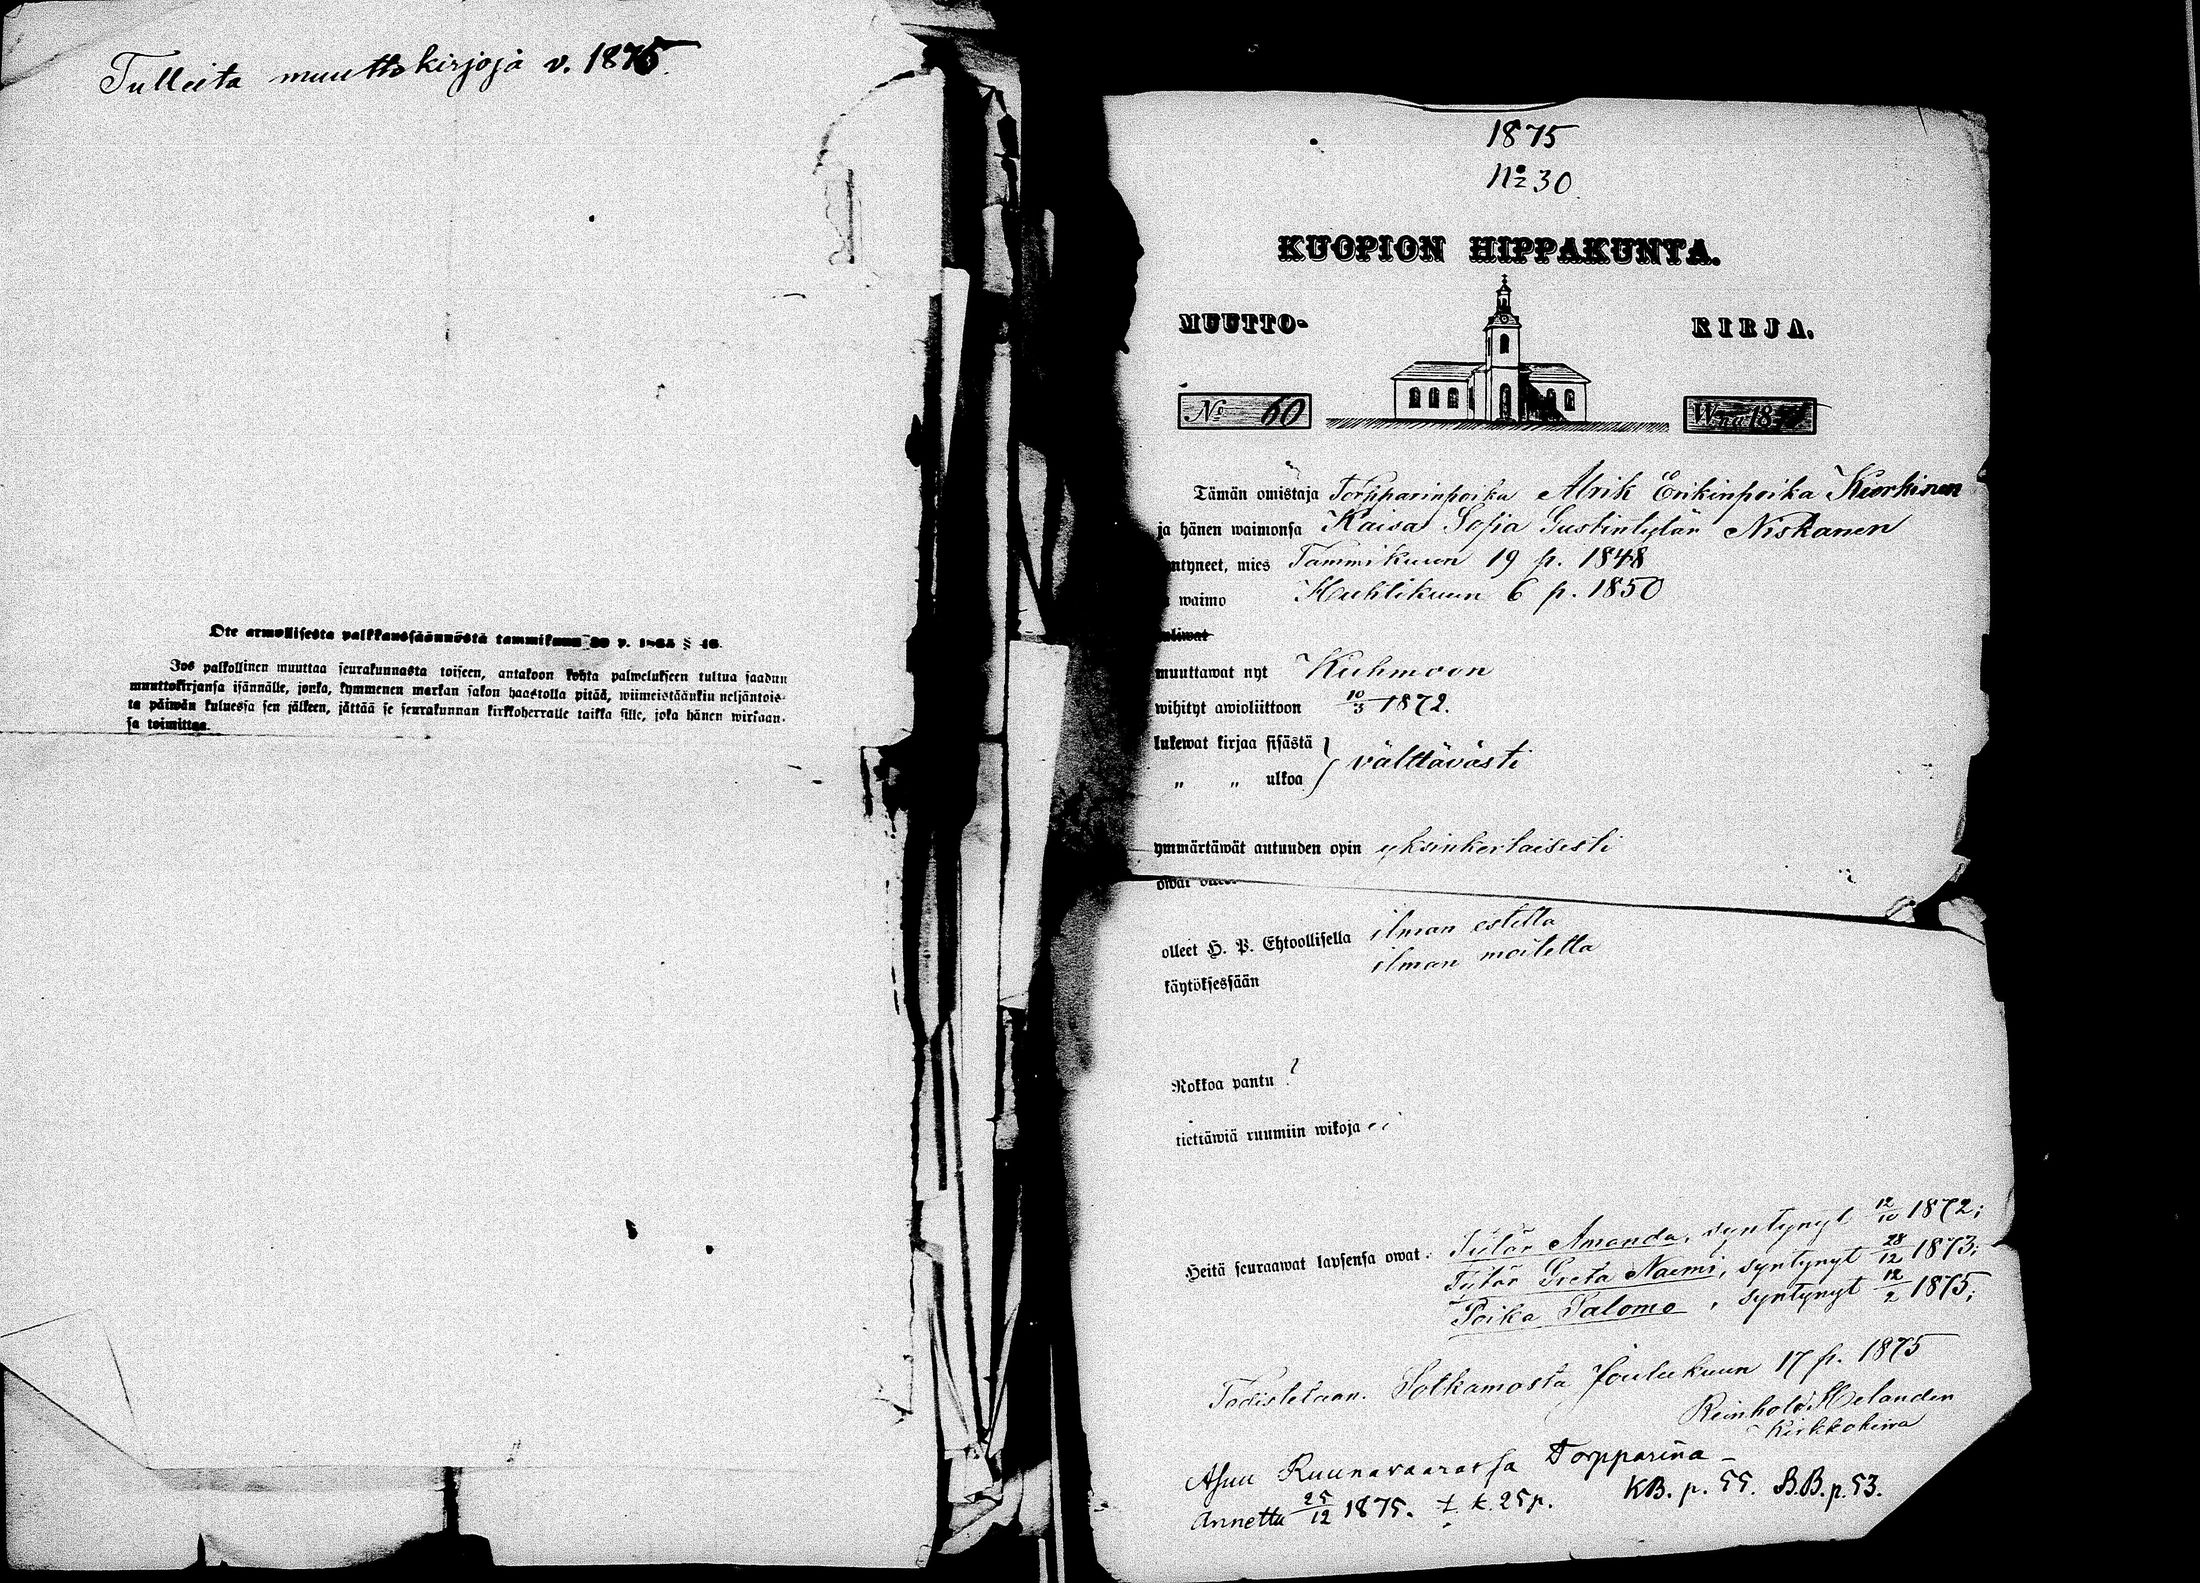 Tulleita muuttokirjoja v. 1875.
Ote armollisesta palkkaussäännöstä tammikuun 30 p. 1865 §
Jos palkollinen muuttaa seurakunnasta toiseen, antakoon kohta palwelukseen tultua saadun
muuttokirjansa isännälle, jonka, kymmenen markan sakon haastolla pitää, wiimeistäänkin neljäntois-
ta päiwän kuluessa sen jälkeen, jättää se seurakunnan kirkkoherralle taikka sille, joka hänen wirkaan-
sa toimittaa.
1875
No 30
KUOPION HIPPAKUNTA.
MUUTTO- KIRJA.
No 60 W:na 18
Tämän omistaja Torpparinpoika Alrik Erikinpoika
ja hänen waimonsa Kaisa Sofia Gustintytär Niskanen
ntyneet, mies Tammikuun 19 p. 1848
waimo Huhtikuun 6 p. 1850
uliwat
muuttawat nyt Kuhmoon
wihityt awioliittoon 10/3 1872.
lukewat kirjaa sisästä } välttävästi
" " ulkoa
ymmärtäwät autuuden opin yksinkertaisesti
owat
olleet H. P. Ehtoollisella ilman estettä
käytöksessään ilman moitetta
Rokkoa pantu ?
tiettäwiä ruumiin wikoja ei
Heitä seuraawat lapsensa owat: Tytär Amanda, syntynyt 12/10 1872;
Tytär Greta Naemi, syntynyt 28/12 1873;
Poika Salomo, syntynyt 12/2 1875;
Todistetaan. Sotkamosta Joulukuun 17 p. 1875
Reinhold Helander
Kirkkoherra
Asuu Ruunavaarassa Torpparina –
Annettu 25/12 1875. t. k. 25 p. KB. p. 55. B.B. p. 53.